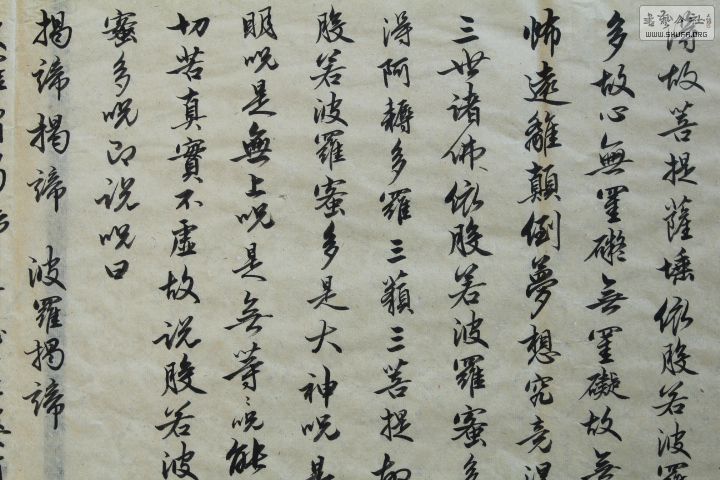 得故菩提薩埵依股若波羅
多故心無罣礙無罣礙故無
怖遠離顛倒夢想究竟涅
三世諸佛依股若波羅蜜多
得阿耨多羅三藐三菩提故
股若波羅蜜多是大神咒是
明咒是無上咒是無等々咒能
切苦真實不虛故说股若波
蜜多咒即说咒曰
揭諦揭諦 波羅揭諦
WWW.SHUFA.ORG